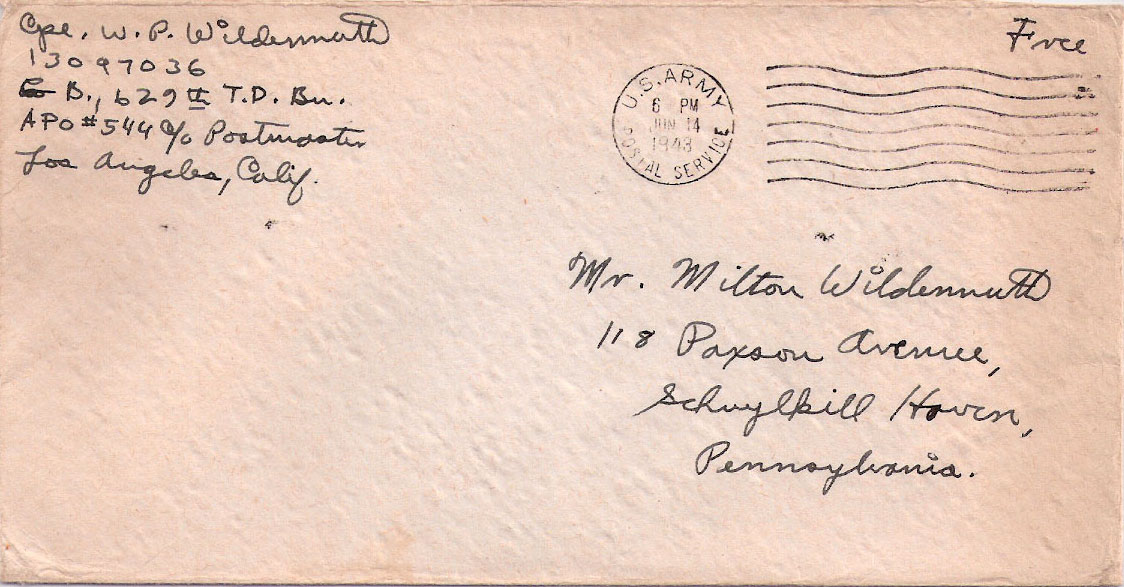 Cpl. W. P. Wildermuth
13097036
Co B., 629th T.D. Bn.
APO #544 c/o Postmaster
Los Angeles, Calif.
Free
U.S. ARMY
6 PM
JUN 14
1943
POSTAL SERVICE
Mr. Milton Wildermuth
118 Paxson Avenue,
Schuylkill Haven,
Pennsylvania.